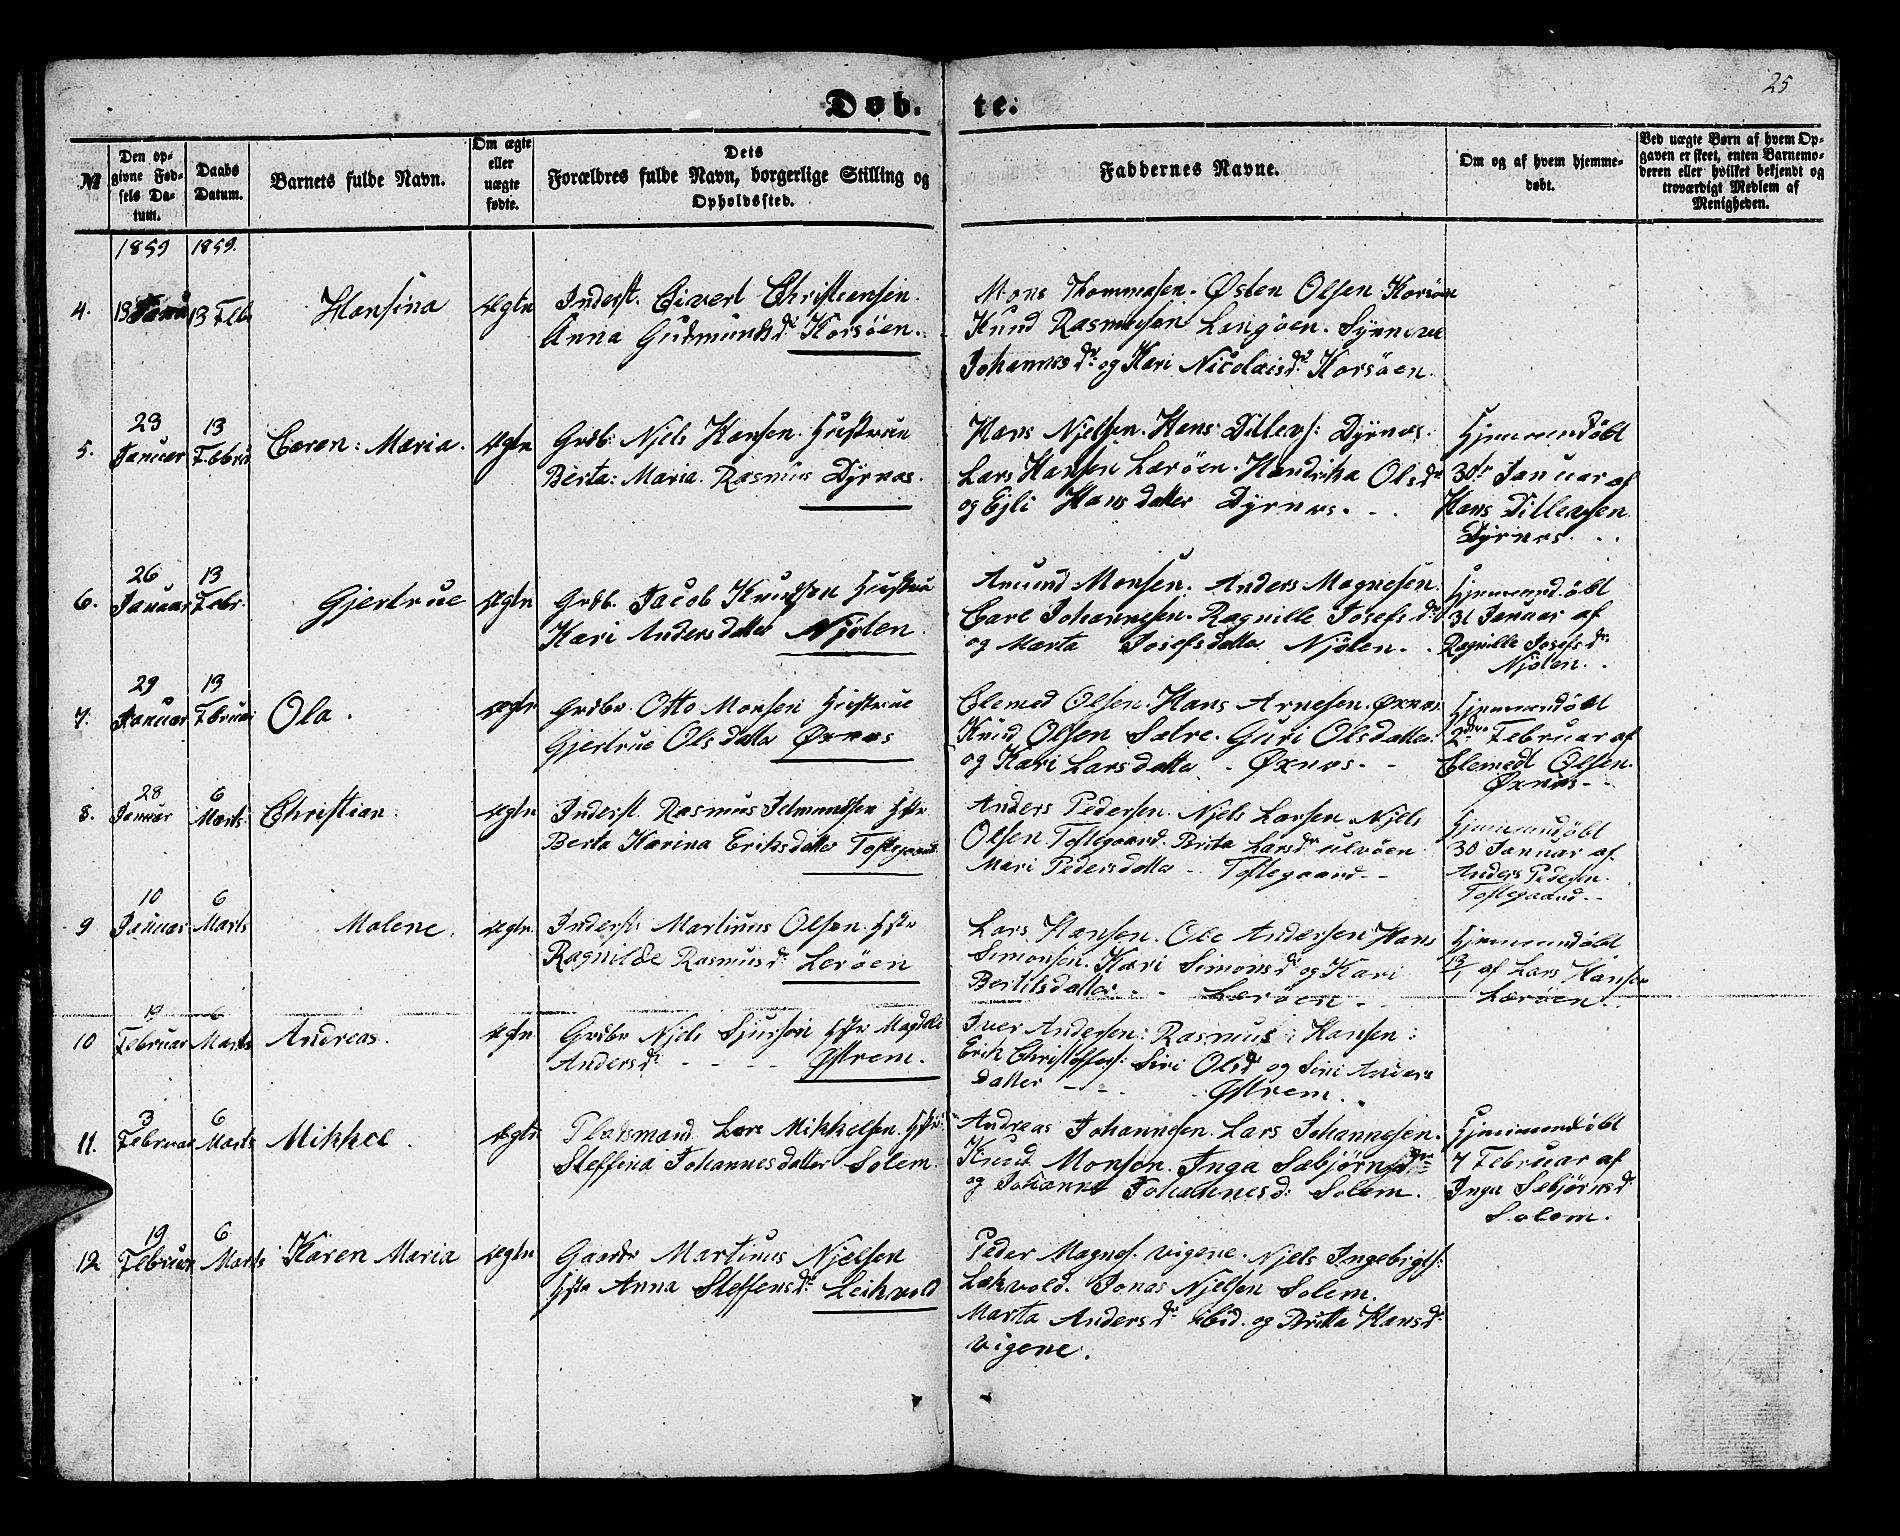 25
Døb. te:
№
Den op-
givne Fød-
sels Da-
tum.
Daabs
Datum.
Barnets fulde Navn.
Om ægte
eller
uægte
fødte.
Dets
Forældres fulde Navn, borgerlige Stilling og
Opholdssted.
Faddernes Navne.
Om og af hvem hjemme-
døbt.
Ved uægte Børn af hvem Op-
gaven er skeet, enten Barnemo-
deren eller hvilket bekjendt og
troværdigt Medlem af
Menigheden.
1859 1859.
4. 13 Feb Hansina Ægte
Inderst. Sivert Christiansen.
Anna Gudmundsdr Korsøen.
Mons Thommasen. Østen Olsen Korsøen
Knud Rasmussen Langøen. Synneve
Johannesdr og Kari Nicolaisdr Korsøen.
5. 23 Januar 13 Februar Caren: Maria. Ægte
Grdb: Njels Hansen. Hustrue
Berta: Maria. Rasmus Dyrnæs.
Hans Njelsen. Hans Dillevs: Dyrnæs.
Lars Hansen Lærøen. Hendrika Olsdr
og Ejli Hansdatter Dyrnæs.
Hjemmendøbt
30te Januar af
Hans Dillevsen
Dyrnæs.
6. 26 Januar 13 Febr. Gjertrue Ægte
Grdb. Jacob Knudsen Hustrue
Kari Andersdatter Njølen.
Amund Monsen. Anders Magnesen.
Carl Johannesen. Ragnille Josefsdr
og Marta Josefsdatter Njølen.
Hjemmendøbt
31 Januar af
Ragnille Josefsdr
Njølen.
7. 29 Januar 13 Februar Ola. Ægte
Grdbr. Otto Monsen Hustrue
Gjertrue Olsdatter Øxnæs
Clemed Olsen. Hans Arnesen. Øxnæs
Knud Olsen Sætre. Guri Olsdatter.
og Kari Larsdatter - Øxnæs.
Hjemmendøbt
2den Februar af
Clemedt Olsen.
Øxnæs
8. 28 Januar 6 Marts Christian. Ægte
Inderst. Rasmus Hstr
Berta Karina Eriksdatter Toftegaard
Anders Pedersen. Njels Larsen Njels
Olsen Toftegaard. Brita Larsdr Ulvøen
Mari Pedersdatter - Toftegaard
Hjemmendøbt
30 Januar af
Anders Pedersen.
Toftegaard
9 10 Januar 6 Marts Malene. Ægte
Inderst. Martinus Olsen Hstr
Ragnilde Rasmusdr Lerøen
Lars Hansen. Ole Andersen Hans
Simonsen. Kari Simonsdr og Kari
Bertilsdatter - Lærøen
Hjemmendøbt
13/1 af Lars Hansen
Lærøen
10 19 Februar 6 Marts Andreas. Ægte
Grdbr Njels Sjursøn Hstr
Andersdr - - - Ystrem.
Iver Andersen: Rasmus: Hansen:
Erik Christoffers: Siri Olsd og Siri Anders
datter - - Ystrem.
11. 3 Februar 6 Marts Mikkel. Ægte
Pladsmand Lars Mikkelsen. Hstr
Steffina Johannesdatter Solem.
Andreas Johannesen. Lars Johannesen.
Knud Monsen. Inga Sæbjørnsdr
og Johanne Johannesd: Solem.
Hjemmendøbt
7 Februar af
Inga Sebjørnsd
Solem.
12 19 Februar 6 Marts Karen Maria Ægte
Gaardbr Martinus Njelsen
Hstr Anna Steffensdr Leikvold
Peder Magnes. Vigene. Njels Ingebrigts:
Lekvold. Jonas Njelsen Solem.
Marta Andersdr ibid. og Britta Hansdr
Vigene.